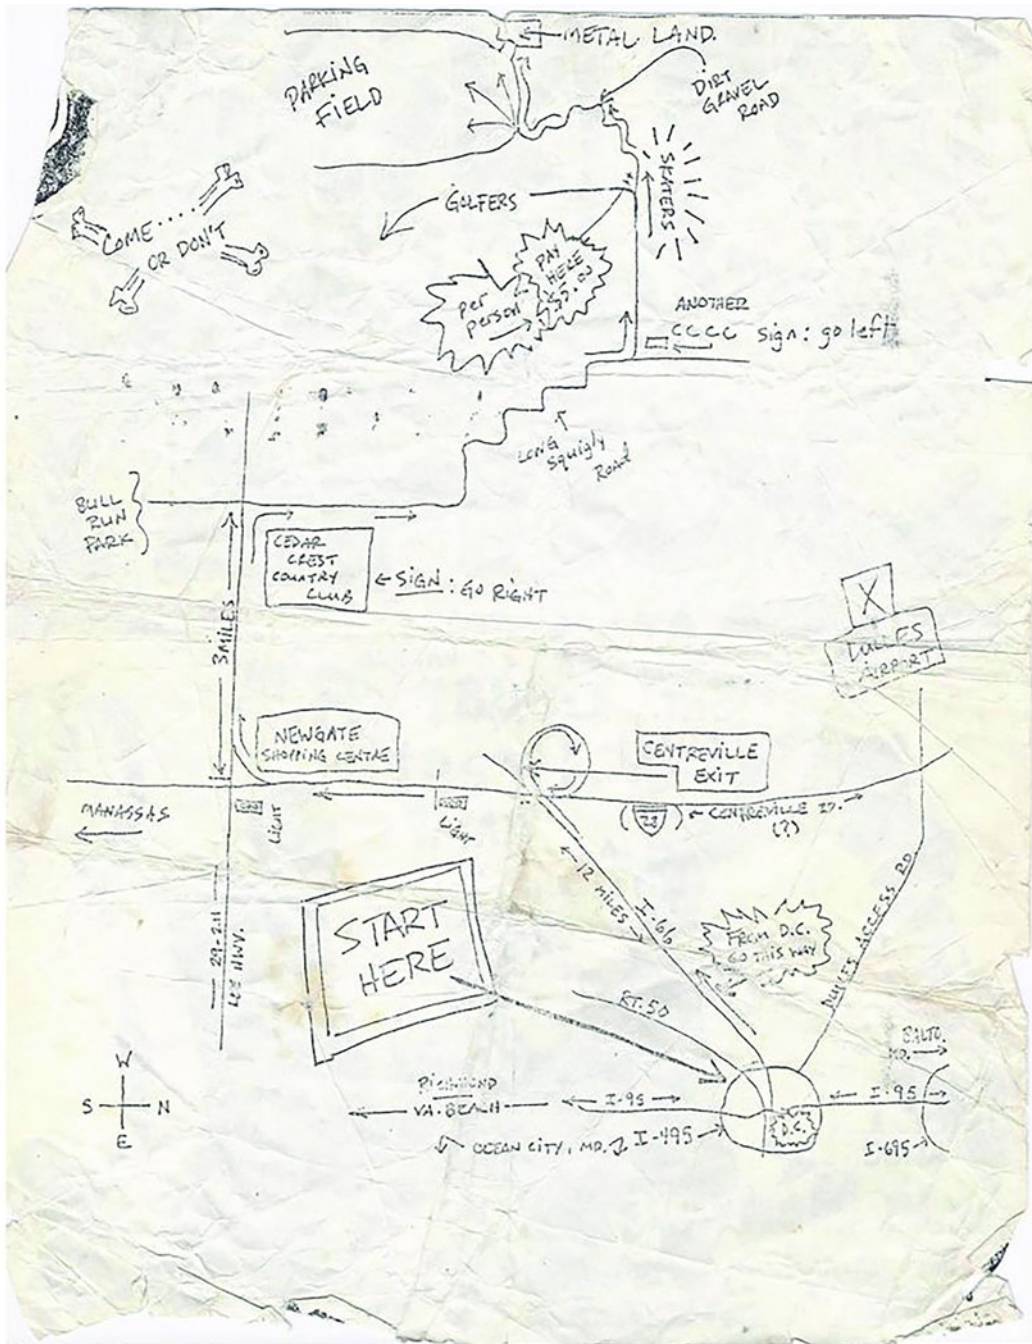 METAL LAND.
PARKING
FIELD
DIRT
GRAVEL
ROAD
SKATERS
GOLFERS
COME ....
OR DON'T
PAY
HERE
$5.00
per
person
ANOTHER
CCCC sign: go left
LONG
squigly
ROAD
BULL
RUN
PARK
CEDAR
CREST
COUNTRY
CLUB
SIGN: GO RIGHT
X
DULLES
AIRPORT
3 MILES
NEWGATE
SHOPPING CENTRE
CENTREVILLE
EXIT
MANASSAS
LIGHT
LIGHT
(28)
CENTREVILLE RD.
(?)
12 MILES
I-66
START
HERE
FROM D.C.
GO THIS WAY
DULLES ACCESS RD.
29-211
LEE HWY.
RT. 50
BALTO.
MD.
W
S
N
E
RICHMOND
VA. BEACH
I-95
I-95
D.C.
OCEAN CITY, MD.
I-495
I-695